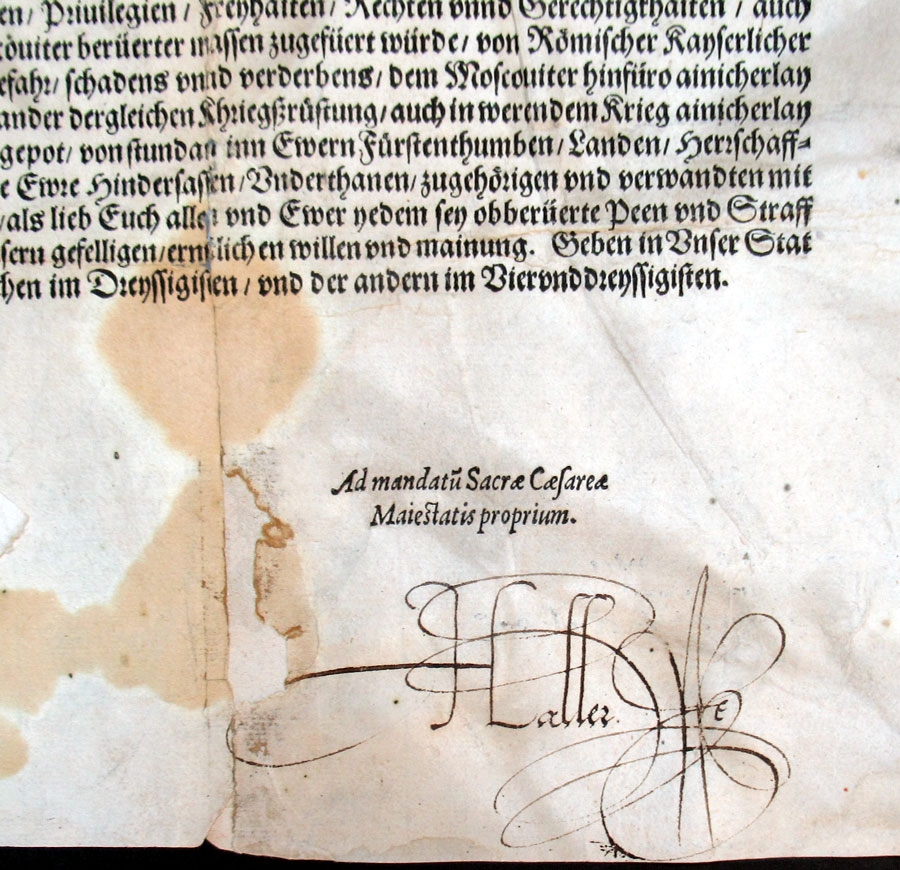 en/ Priuilegien / Freyhaiten/ Rechten vnnd Gerechtigkhaiten / auch
couiter berüerter massen zugefüert würde/ von Römischer Kayserlicher
efahr/ schadens vnnd verderbens/ dem Moscouiter hinfüro ainicherlay
ander dergleichen Khriegßrüstung/ auch in werendem Krieg ainicherlay
gepot/ von stundan inn Ewern Fürstenthumben/ Landen/ Herrschaff⸗
e Ewre Hindersassen/ Vnderthanen/ zugehörigen vnd verwandten mit
/als lieb Euch aller vnd Ewer yedem sey obberüerte Peen vnd Straff
sern gefelligen/ ernstlichen willen vnd mainung. Geben in Vnser Stat
hen im Dreyssigisten / vnd der andern im Viervnddreyssigisten.
Ad mandatũ Sacræ Cæsareæ
Maiestatis proprium.
Haller